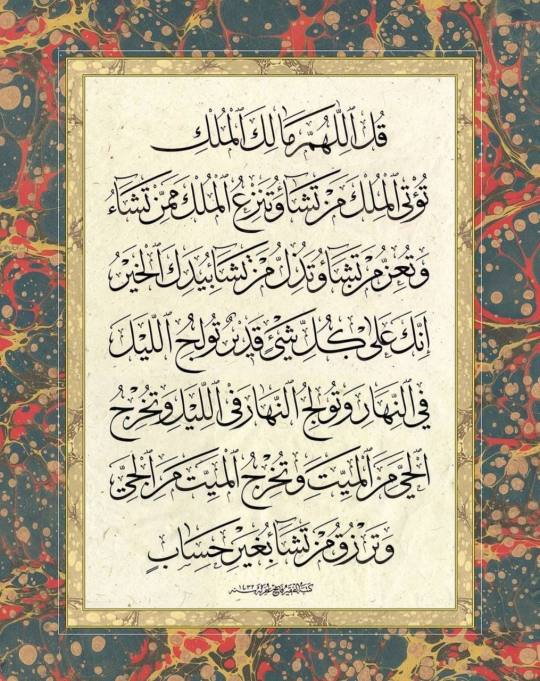 قُلِ ٱللَّهُمَّ مَالِكَ ٱلْمُلْكِ
تُؤْتِى ٱلْمُلْكَ مَنْ تَشَآءُ وَتَنْزِعُ ٱلْمُلْكَ مِمَّنْ تَشَآءُ
وَتُعِزُّ مَنْ تَشَآءُ وَتُذِلُّ مَنْ تَشَآءُ بِيَدِكَ ٱلْخَيْرُ
اِنَّكَ عَلَىٰ كُلِّ شَىْءٍ قَدِيرٌ تُولِجُ ٱللَّيْلَ
فِي ٱلنَّهَارِ وَتُولِجُ ٱلنَّهَارَ فِى ٱللَّيْلِ وَتُخْرِجُ
ٱلْحَيَّ مِنَ ٱلْمَيِّتِ وَتُخْرِجُ ٱلْمَيِّتَ مِنَ ٱلْحَيِّ
وَتَرْزُقُ مَنْ تَشَآءُ بِغَيْرِ حِسَابٍ
كتبه الفقير